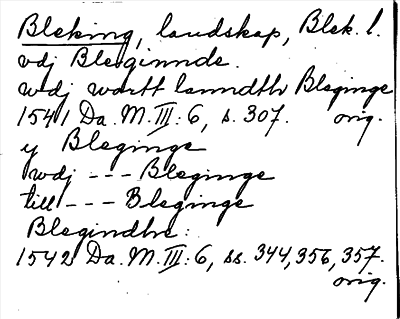 Bleking, landskap, Blek. l.
vdj Bleginnde.
wdj wortt lanndth Bleginge
1541 Da. M. III: 6, s. 307. orig.
y Bleginge
wdj --- Bleginge
till --- Bleginge
Blegindhe:
1542 Da. M. III: 6, ss. 344, 356, 357.
orig.